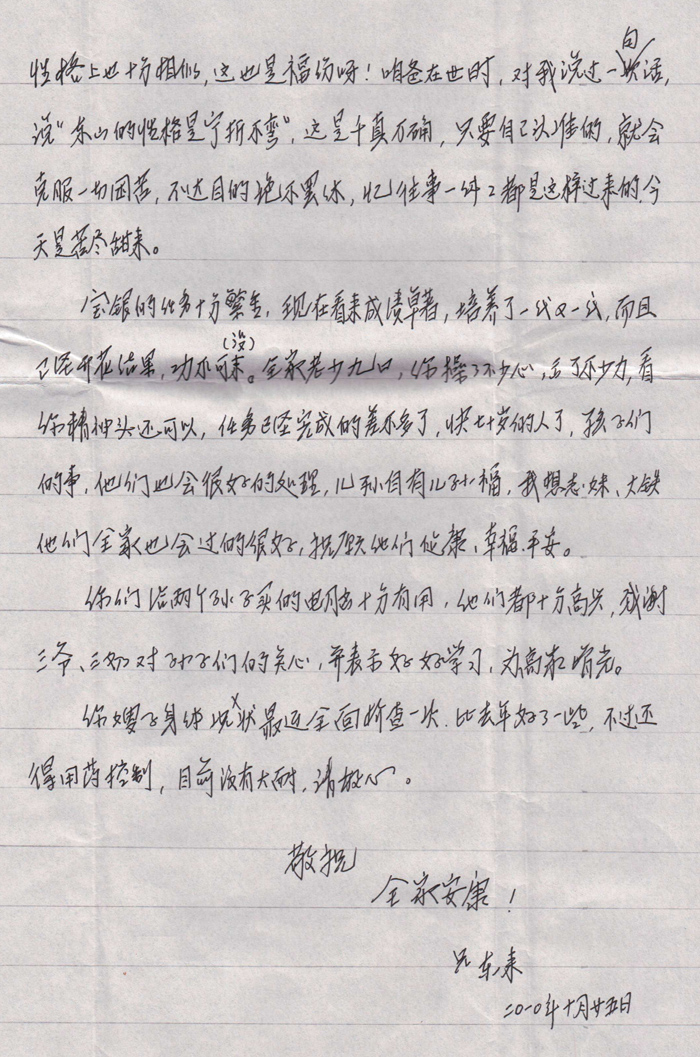 性格上也十分相似，这也是福份呀！咱爸在世时，对我说过一句话，
说“东山的性格是宁折不弯”，这是千真万确，只要自己认准的，就会
克服一切困苦，不达目的绝不罢休，忆往事一件々都是这样过来的，今
天是苦尽甜来。
宝银的任务十分繁重，现在看来成绩卓著，培养了一代又一代，而且
已经开花结果，功不可没。全家老少九口，你操了不少心，出了不少力，看
你精神头还可以，任务已经完成的差不多了，快七十岁的人了，孩子们
的事，他们也会很好的处理，儿孙自有儿孙福，我想志妹、大铁
他们全家也会过的很好，祝愿他们健康、幸福、平安。
你们给两个孙子买的电脑十分有用，他们都十分高兴，感谢
三爷、三奶对孙子们的关心，并表示好好学习，为高家增光。
你嫂子身体状况最近全面检查一次，比去年好了一些，不过还
得用药控制，目前没有大碍，请放心。
敬祝
全家安康！
兄 东来
二〇一〇年十月廿五日